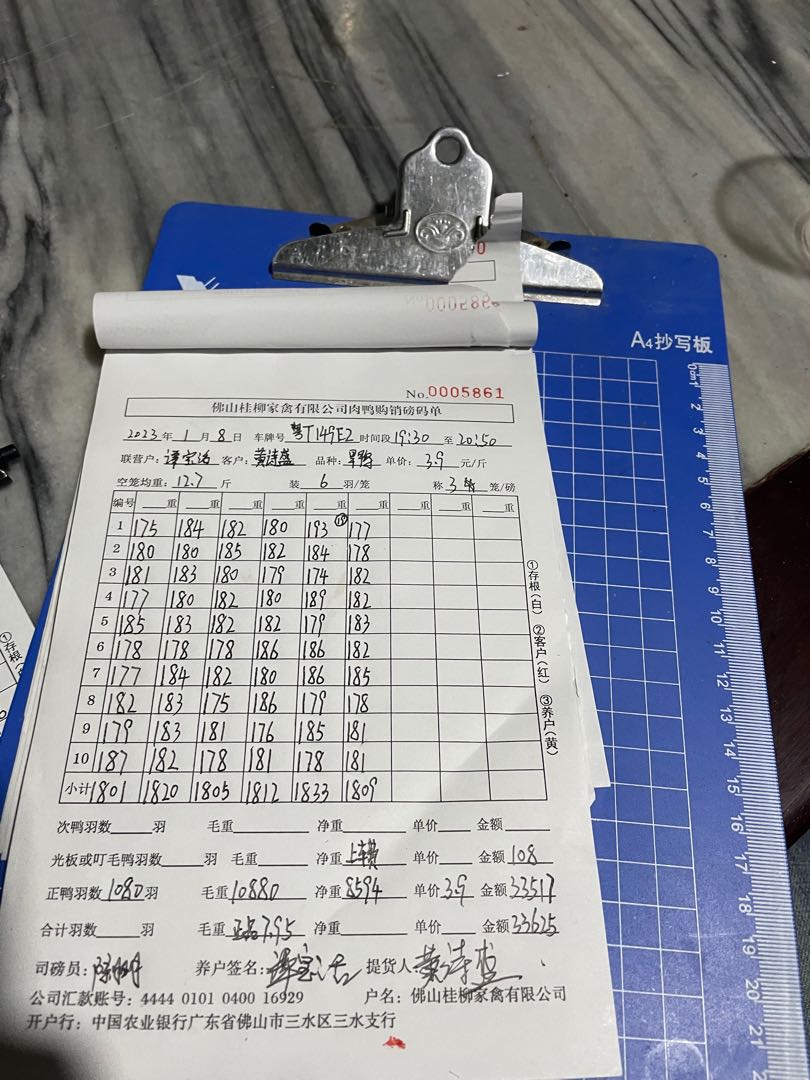 0005886
A4抄写板
No.0005861
佛山桂柳家禽有限公司肉鸭购销磅码单
2023年 1月 8日 车牌号 粤T149E2 时间段 19:30 至 20:50
联营户: 谭宝洁 客户: 黄诗盛 品种: 旱鸭 单价: 3.9 元/斤
空笼均重: 12.7 斤 装 6 羽/笼 称 3 笼/磅
编号 重 重 重 重 重 重 重 重 重
1 175 184 182 180 193 177
2 180 180 185 182 184 178
3 181 183 180 179 174 182
4 177 180 182 180 189 182
5 185 183 182 182 179 183
6 178 178 178 186 186 182
7 177 184 182 180 186 185
8 182 183 175 186 179 178
9 179 183 181 176 185 181
10 187 182 178 181 178 181
小计 1801 1820 1805 1812 1833 1809
①存根(白) ②客户(红) ③养户(黄)
次鸭羽数 羽 毛重 净重 单价 金额
光板或叮毛鸭羽数 羽 毛重 净重 上车费 单价 金额 108
正鸭羽数 1080 羽 毛重 10880 净重 8594 单价 3.9 金额 33517
合计羽数 羽 毛重 正品7.95 净重 单价 金额 33625
司磅员: 养户签名: 谭宝洁 提货人: 黄诗盛
公司汇款账号: 4444 0101 0400 16929 户名: 佛山桂柳家禽有限公司
开户行: 中国农业银行广东省佛山市三水区三水支行
①存根
0cm1 2 3 4 5 6 7 8 9 10 11 12 13 14 15 16 17 18 19 20 21